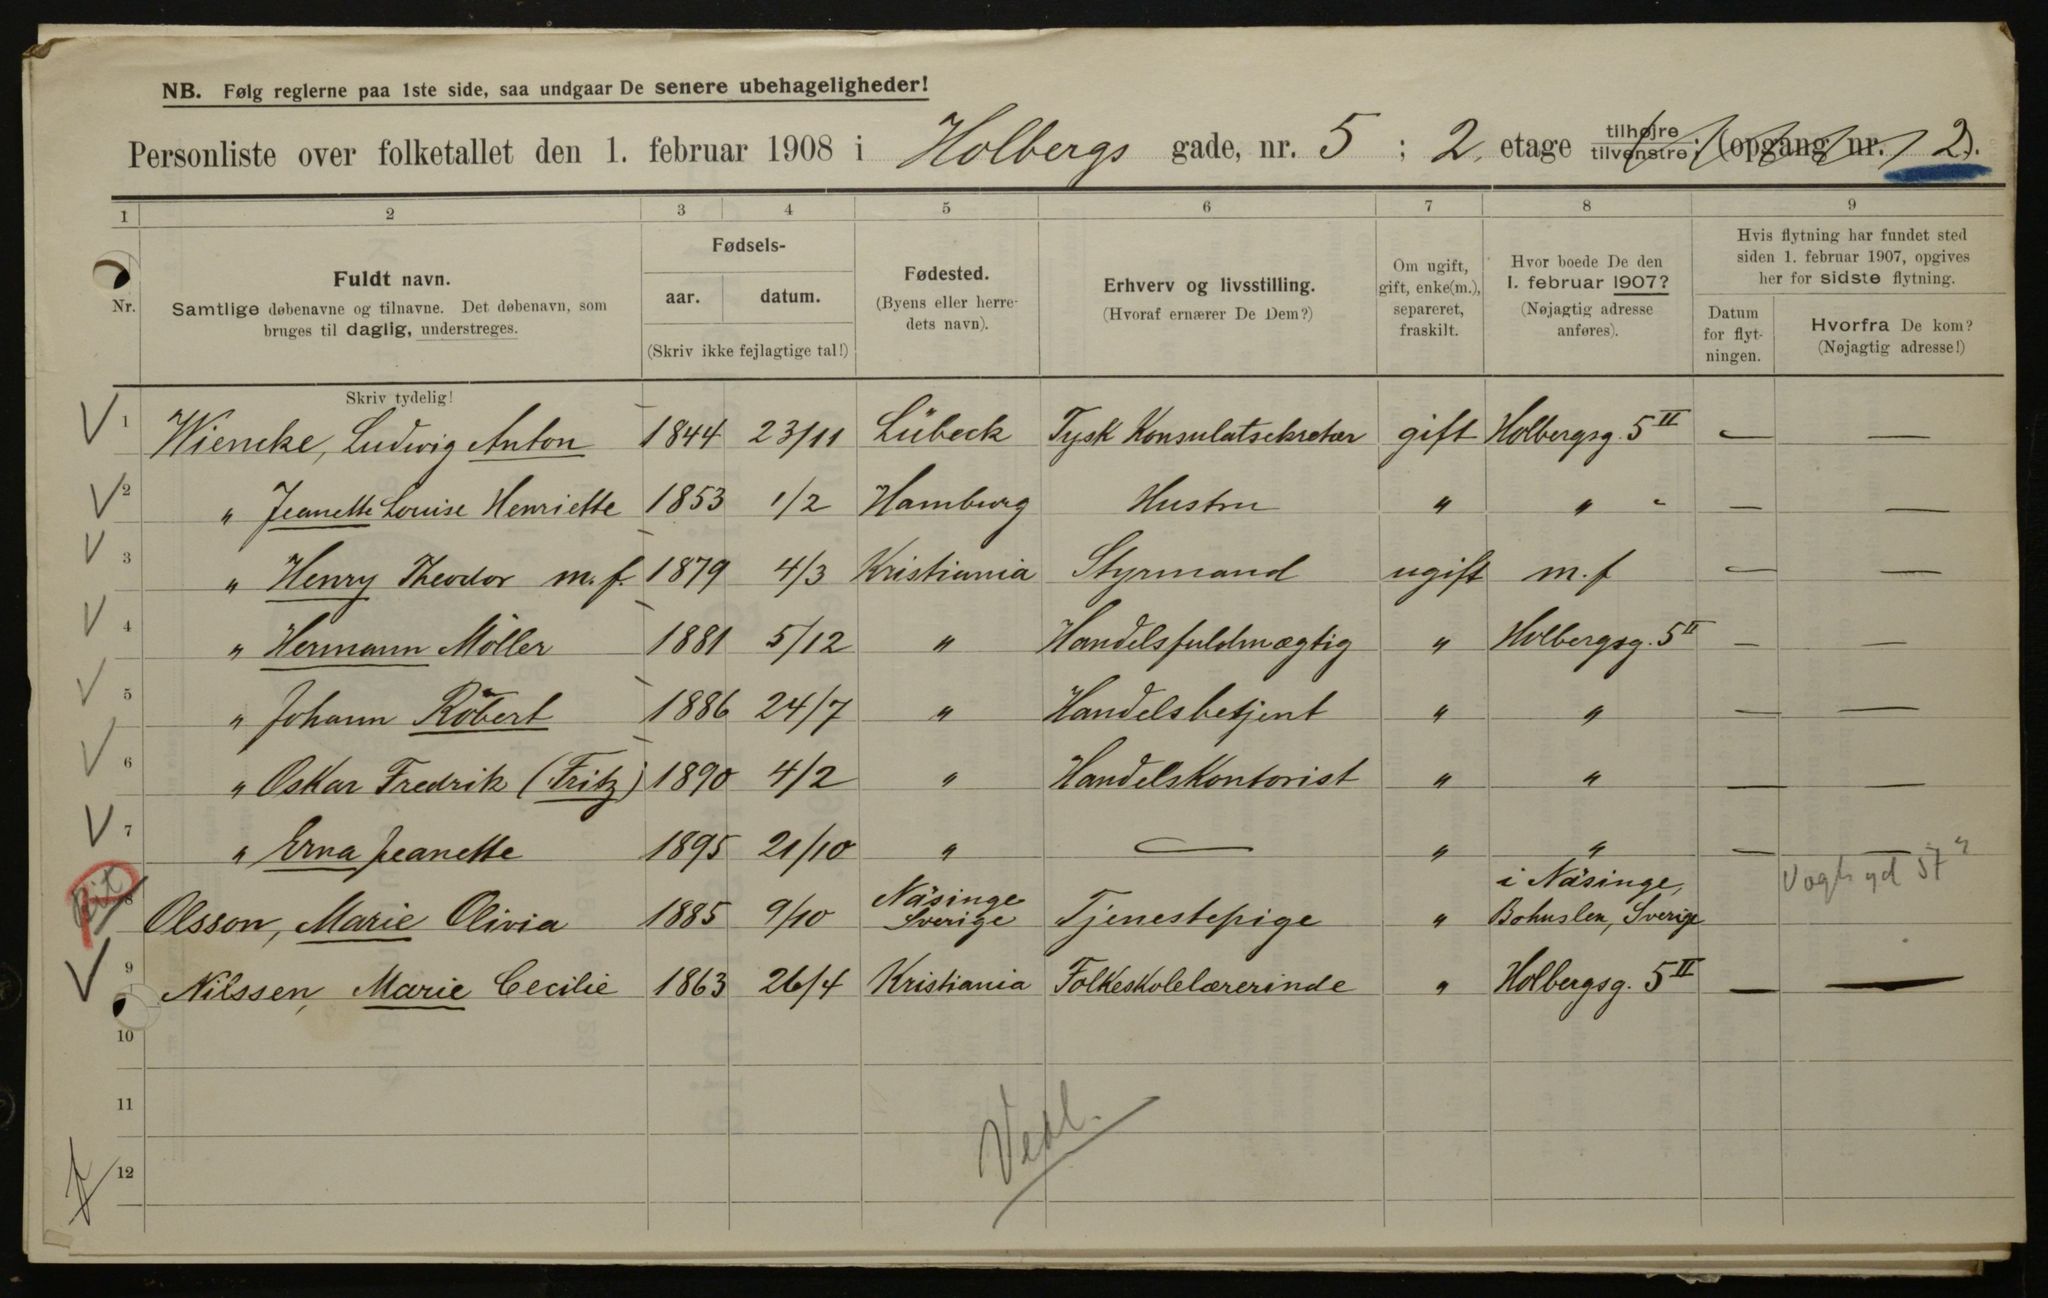 NB. Følg reglerne paa 1ste side, saa undgaar De senere ubehageligheder!
Personliste over folketallet den 1. februar 1908 i Holbergs gade, nr. 5 ; 2. etage tilhøjre tilvenstre; (opgang nr. 2).
1 2 3 4 5 6 7 8 9
Nr.
Fuldt navn.
Samtlige døbenavne og tilnavne. Det døbenavn, som
bruges til daglig, understreges.
Skriv tydelig!
Fødsels-
aar. datum.
(Skriv ikke fejlagtige tal!)
Fødested.
(Byens eller herre-
dets navn).
Erhverv og livsstilling.
(Hvoraf ernærer De Dem?)
Om ugift,
gift, enke(m.),
separeret,
fraskilt.
Hvor boede De den
1. februar 1907?
(Nøjagtig adresse
anføres).
Hvis flytning har fundet sted
siden 1. februar 1907, opgives
her for sidste flytning.
Datum
for flyt-
ningen.
Hvorfra De kom?
(Nøjagtig adresse!)
1 Wiencke, Ludwig Anton 1844 23/11 Lübeck Tysk Konsulatsekretær gift Holbergsg. 5 II — —
2 " Jeanette Louise Henriette 1853 1/2 Hamburg Hustru " " " — —
3 " Henry Theodor m. f. 1879 4/3 Kristiania Styrmand ugift m. f — —
4 " Hermann Möller 1881 5/12 " Handelsfuldmægtig " Holbergsg. 5 II — —
5 " Johann Robert 1886 24/7 " Handelsbetjent " " — —
6 " Oskar Fredrik (Fritz) 1890 4/2 " Handelskontorist " " — —
7 " Erna Jeanette 1895 21/10 " — " " — —
8 Olsson, Marie Olivia 1885 9/10 Näsinge Sverige Tjenestepige " i Näsinge, Bohuslen, Sverige
9 Nilssen, Marie Cecilie 1863 26/4 Kristiania Folkeskolelærerinde " Holbergsg. 5 II — —
10
11
12
Vedl.